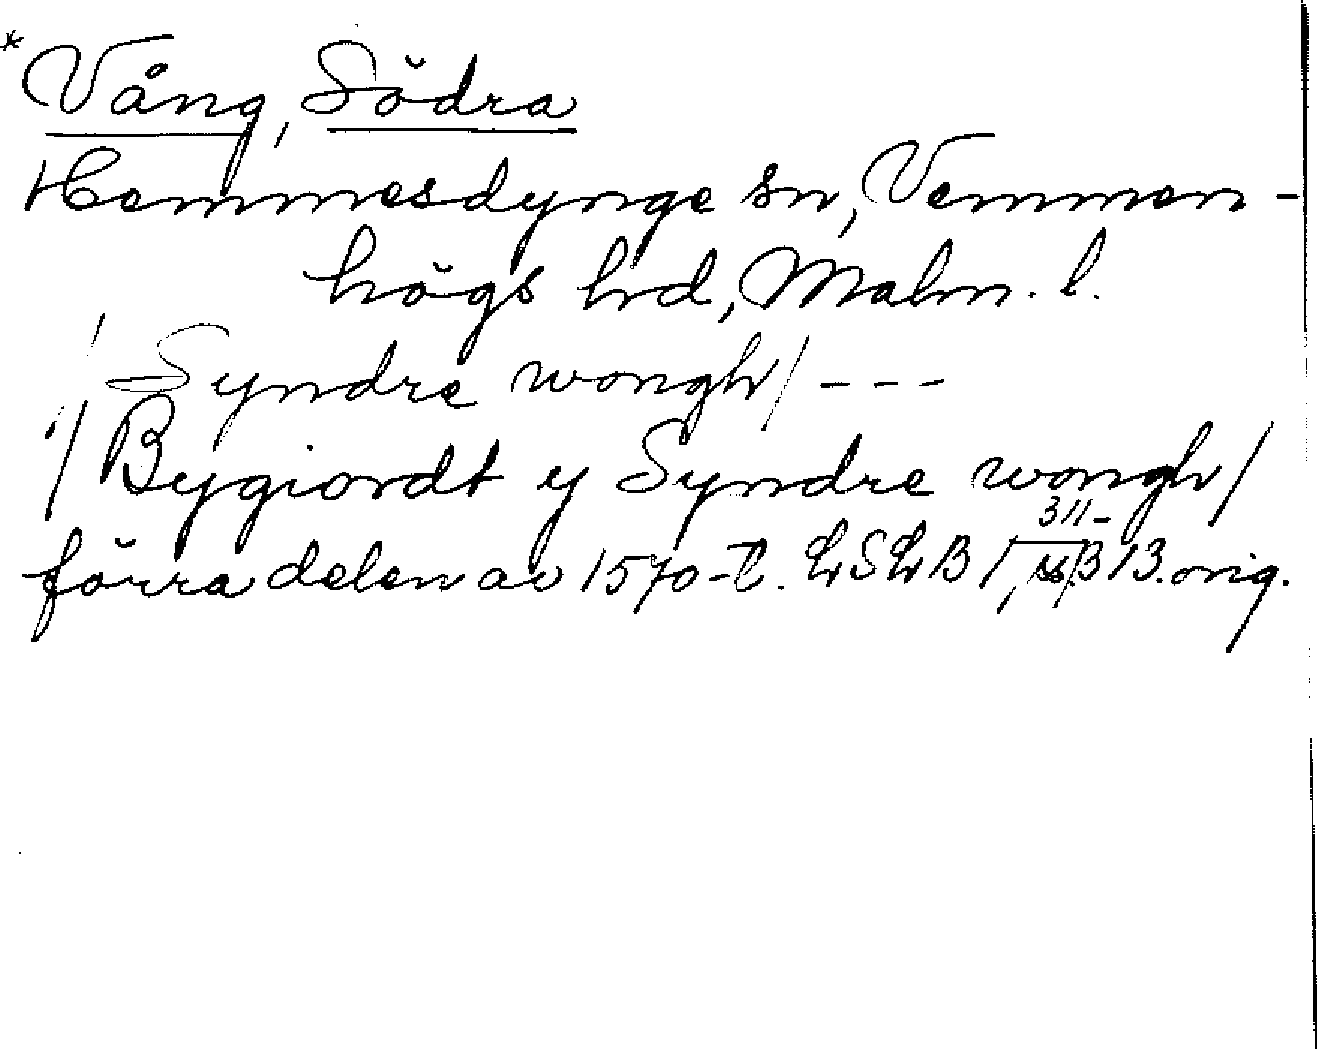 *Vång, Södra
Hemmesdynge sn, Vemmen-
högs hrd, Malm. l.
/ Syndre wongh/ ---
:/ Bygiordt y Syndre wongh/
förra delen av 1570-t. LSLB I, 311- B 13. orig.